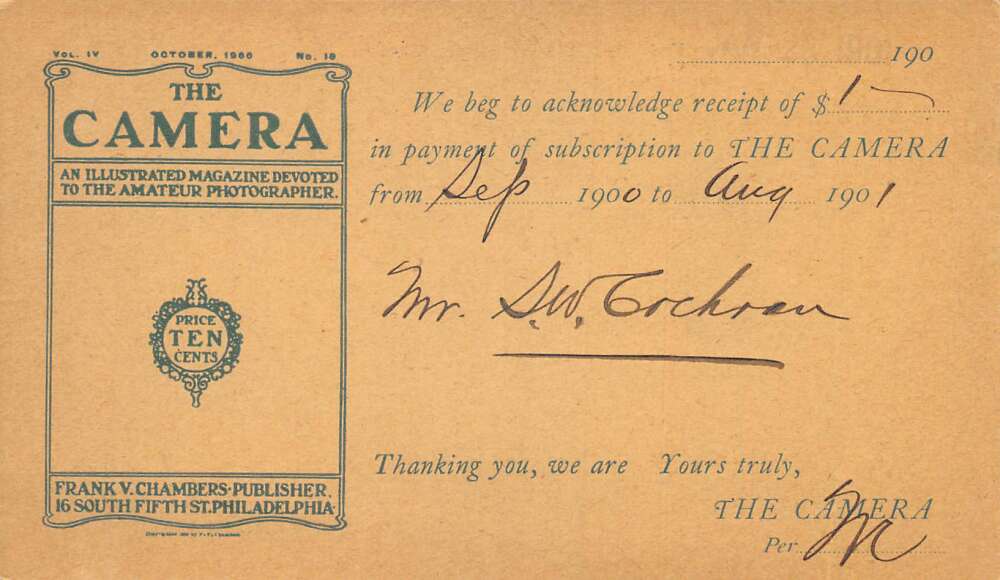 VOL. IV OCTOBER, 1900 No.
THE
CAMERA
AN ILLUSTRATED MAGAZINE DEVOTED
TO THE AMATEUR PHOTOGRAPHER.
PRICE
TEN
CENTS
FRANK V. CHAMBERS·PUBLISHER,
16 SOUTH FIFTH ST. PHILADELPHIA·
190
We beg to acknowledge receipt of $ 1
in payment of subscription to THE CAMERA
from Sep 1900 to Aug 1901
Mr. S. W. Cochran
Thanking you, we are Yours truly,
THE CAMERA
Per